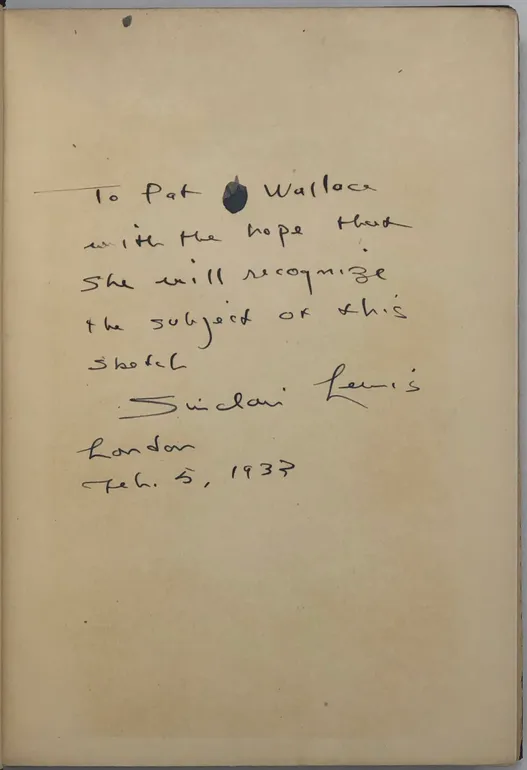 To Pat Wallace
with the hope that
she will recognize
the subject of this
sketch
Sinclair Lewis
London
Feb. 5, 1933